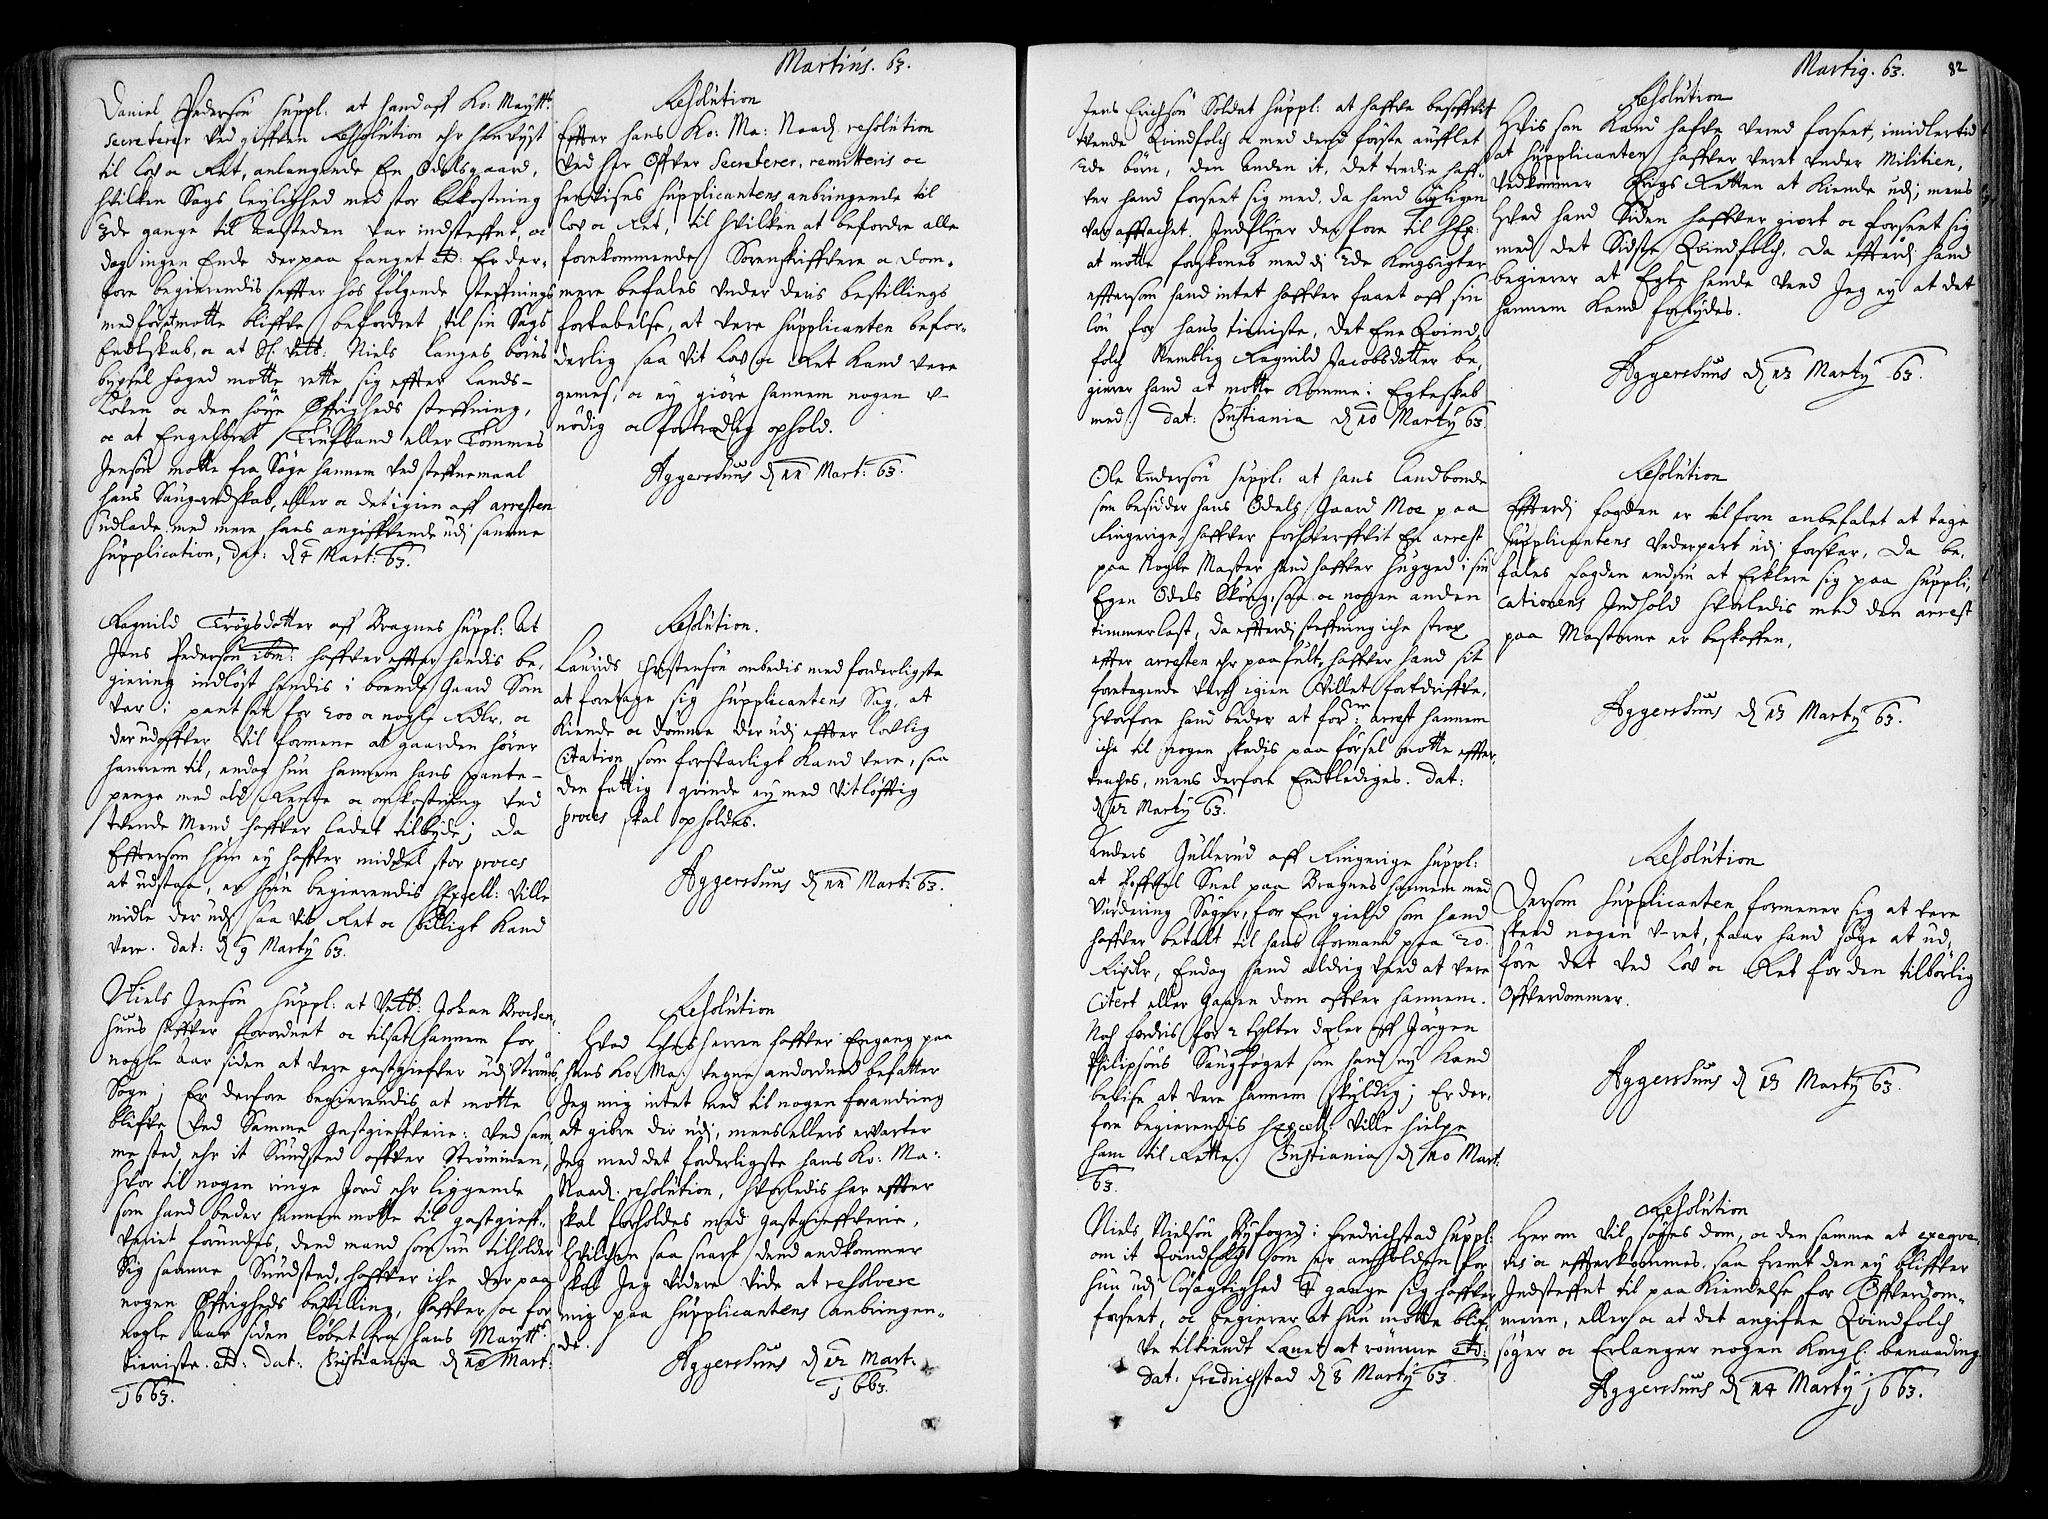 Martius. 63.
Daniel Pedersøn suppl. at hand aff Ko: Maytts
secreterer ved giffven Resolution ehr henvyst
til Lov oc Ret, anlangende En Odelsgaard,
hvilken Sags leylighed med stor bekostning
3de gange til aasteden var indsteffnet, oc
dog ingen Ende der paa fanget etc: Er der-
fore begierendis effter hos følgende steffnings
med for motte bliffve befordret til sin Sags
Endelskab, oc at Sl: Velb: Niels Langes børns
bypsel foged motte rette sig effter Lands-
Loven oc den høye Øfrigheds steffning,
oc at Engelbret eller Tommes
Jensøn motte fra Søge hannem ved steffnemaal
hans Saugredskab, eller oc det igien aff arresten
udlade, med mere hans angiffvende udj samme
supplication, dat: d 4 Mart: 63.
Resolution
Effter hans Ko: Ma: Naad. resolution
ved her Offver Secreterer, remitteris oc
henvises supplicantens anbringende til
Lov oc Ret, til hvilken at befordre alle
forekommende Sorenskriffvere oc Dom-
mere befales under deris bestillings
fortabelse, at vere supplicanten befor-
derlig saa vit Lov oc Ret kand vere
gemes, oc ey giøre hannem nogen u-
nødig oc fortredelig ophold.
Aggershuus d 11 Mart: 63.
Ragnild Trøgsdotter aff Bragnes suppl: At
Jens Pedersøn ibm: haffver effter hendis be-
giering indløst hendis i boende Gaard Som
var i pantsat for 200 oc nogle Rdlr, oc
der udoffver vil formene at gaarden hører
hannem til, endog hun hannem hans pante-
penge med ald Rente oc omkostning ved
tvende Mend haffver ladet tilbyde; da
Efftersom hun ey haffver middel stor proces
at udstaa, er hun begierendis HExcell: ville
midle der udj saa vit Ret oc billigt kand
vere. dat: d 9 Martij 63.
Resolution.
Laurids Christensøn ombedis med forderligste
at foretage sig supplicantens Sag, at
kiende oc domme der udj effter lovlig
Citation, som forsvarligt kand vere, saa
den fattig qvinde ey med vitløfftig
proces skal opholdes.
Aggershuus d 11 Mart: 63.
Niels Jensøn suppl: at Velb: Johan Brochen-
huus haffver forordnet oc tilsat hannem for
nogle aar siden at vere gastgieffver udj Strøms
Sogn; Er derfore begierendis at motte
bliffve ved Samme gastgieffverie: ved sam-
me sted, ehr it Sundsted offver Strømmen,
hvor til nogen ringe Jord ehr liggende
som hand beder hannem motte til gastgieff-
veriet forundes, dend mand som nu tilholder
Sig samme Sundsted, haffver iche der paa
nogen Øffrigheds bestilling, haffver oc for
nogle aar siden løbet fra hans Maytts
Tieniste. etc: dat: Christiania d 10 Mart:
1663.
Resolution
Hvad Lehnsherren haffver Engang paa
hans Ko: Ma: vegne anordned befatter
Jeg mig intet med til nogen forandring
at giøre der udj, mens ellers ervarter
Jeg med det forderligste hans Ko: Ma:
Naad. resolution, hvorledis her effter
skal forholdes med gastgieffverie,
hvilchen saa snart dend ankommer
skal Jeg videre vide at resolvere
mig paa supplicantens anbringen-
de.
Aggershuus d 12 Mart:
1663.
Martig. 63. 82
Jens Erichsøn Soldat suppl: at haffve besoffvit
tvende Qvindfolch oc med dend første aufflet
2de børn, den anden it, det tredie haff-
ver hand forseet sig med, da hand
var afftachet. Indflyer der fore til HEx:
at motte forskones med di 2de kongsigter
effterson hand intet haffver faaet aff sin
løn for hans tieniste, det Ene Qvind-
folch Nemblig Ragnild Jacobsdotter be-
gierer hand at motte komme i Egteskab
med. dat: Christiania d 10 Martij 63.
Resolution
Hvis som kand hafve verend forseet, imidlertid
at supplicanten haffver veret under Militien,
vedkommer Krigs Retten at kiende udj, mens
hvad hand Siden haffver giort oc forseet sig
med det Sidste Qvindfolch. da effterdj hand
begierer at Egte hende veed Jeg ey at det
hannem kand forbydes.
Aggershuus d 13 Martij 63.
Ole Andersøn suppl: at hans Landbonde
som besidder hans Odels Gaard Moe paa
Ringerige, haffver forhverffvit En arrest
paa Nogle Master hand haffver hugged i sin
Egen Odels Skoug, saa oc nogen anden
timmerlast, da effterdj steffning iche strax
effter arresten ehr paafult, haffver hand sit
foretagende verch igien villet fortdriffve,
hvorfore hand beder at for: arrest hannem
iche til nogen skadis paa førsel motte effter-
taches, mens derfore Endtlediges. dat:
d 12 Martij 63.
Resolution
Efterdj fogden er tilforn anbefalet at tage
supplicantens vederpart udj forsvar, da be-
fales fogden endnu at Erklere sig paa suppli-
cationens Indhold hvorledis med den arrest
paa Masterne er beskaffen.
Aggershuus d 13 Martij 63.
Anders Gullerud aff Ringerige suppl:
at Poffvel Snel paa Bragnes hannem med
Vurdering Søger, for En gield som hand
haffver betalt til hans formand paa 20.
Rixdlr, Endog hand aldrig veed at vere
Citert eller gaaen dom offver hannem.
Noch fordris for 2 tylter deler aff Jørgen
Philipsøns Saugfoget som hand ey kand
bevise at vere hannem skyldig; Er der-
fore begierendis HExcell: ville hielpe
ham til Rette. Christiania d 10 Mart:
63.
Resolution
Dersom supplicanten formener sig at vere
skeed nogen u-ret, faar hand søge at ud-
føre det ved Lov oc Ret for den tilbørlig
Offverdommer.
Aggershuus d 13 Martij 63.
Niels Nielsøn Byfoged i Fredrichstad suppl:
om it Qvindfolch som er anholden for
hun udj løsagtighed gange sig haffver
forseet, oc begierer at hun motte blif-
ve tilkiendt Lanet at rømme etc:
dat: fredrichstad d 8 Martij 63.
Resolution
Her om vil søges dom, oc den samme at exeqve-
ris oc effterkommes, saa fremt den ey bliffver
Indsteffnet til paa kiendelse for Offverdom-
meren, eller oc at det angifne Qvindfolch
søger oc Erlanger nogen Kongl: benaading
Aggershuus d 14 Martij 1663.